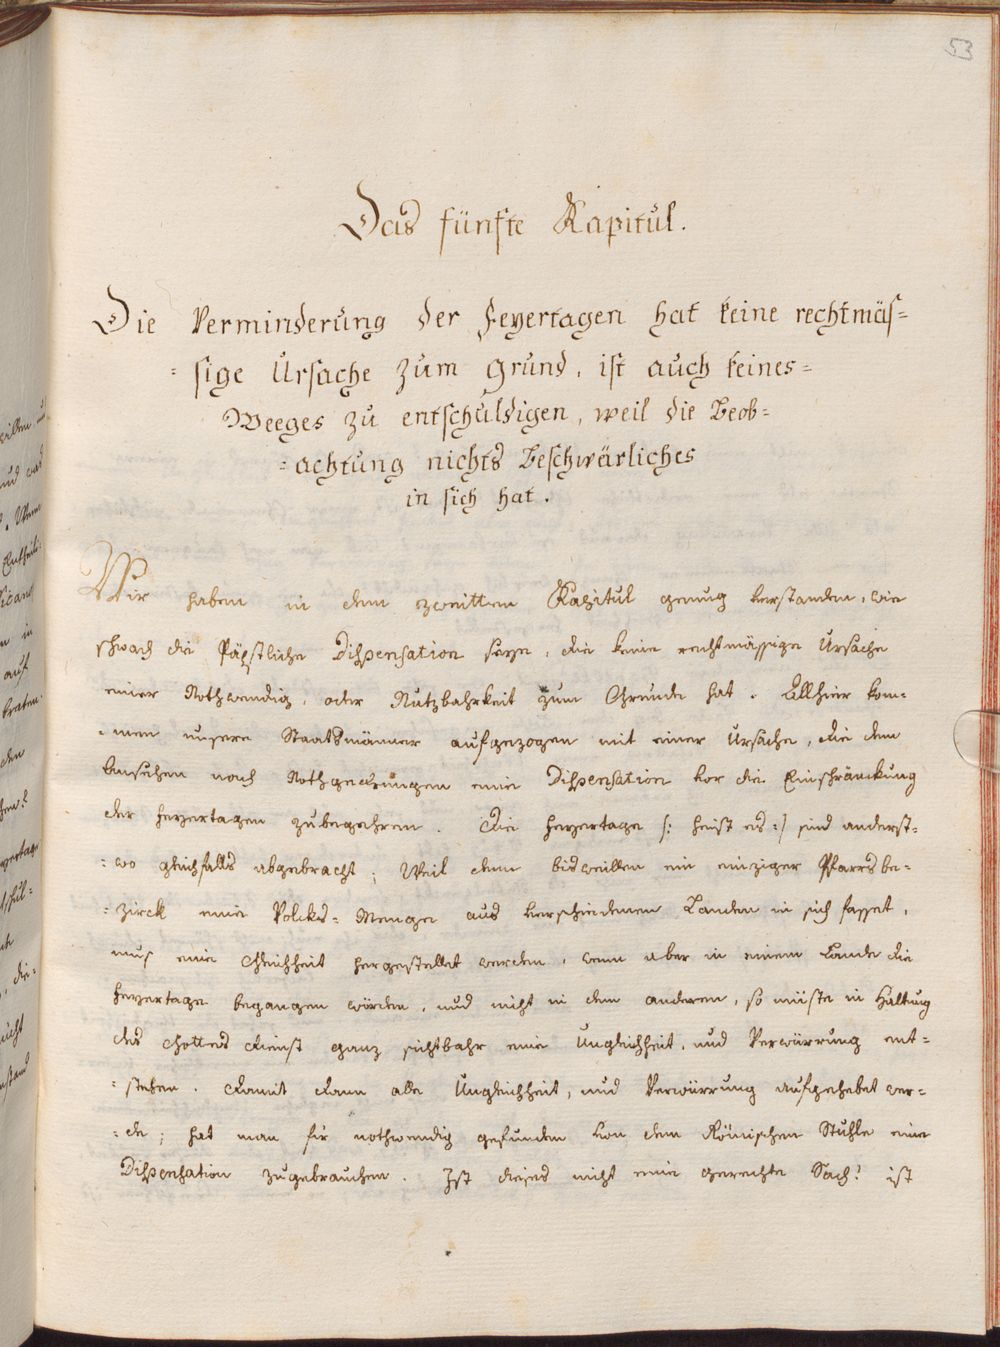 53
Das fünfte Kapitul.
Die Verminderung der Feyertagen hat keine rechtmäs=
= sige Ursache zum grund, ist auch keines=
Weeges zu entschuldigen, weil die Beob=
= achtung nichts Beschwärliches
in sich hat.
Wir haben in dem zweittem Kapitul genug verstanden, wie
schwach die Päpstliche Dispensation seye, die keine rechtmässige Ursache
einer Nothwendig, oder Nutzbahrkeit zum Grunde hat. Allhier kom=
= men unsere Staatsmänner aufgezogen mit einer Ursache, die dem
ansehen nach Nothgedrungen eine Dispensation vor die Einschränckung
der feyertagen zubegehren. Die feyertage /: heist es :/ sind anderst=
= wo gleichfalls abgebracht; Weil dann bisweillen ein einziger Pfarrsbe=
= zirck eine Volcks= Menge aus verschiedenen Landen in sich fasset,
mus eine Gleichheit hergestellet werden, wenn aber in einem Lande die
feyertage begangen würden, und nicht in dem anderen, so müste in Haltung
des Gottes Dienst ganz sichtbahr eine Ungleichheit, und Verwürrung ent=
= stehen. Damit dann alle Ungleichheit, und Verwürrung aufgehebet wer=
= de; hat man für nothwendig gefunden von dem Römischen Stuhle eine
Dispensation zugebrauchen. Ist dieses nicht eine gerechte Sach? ist